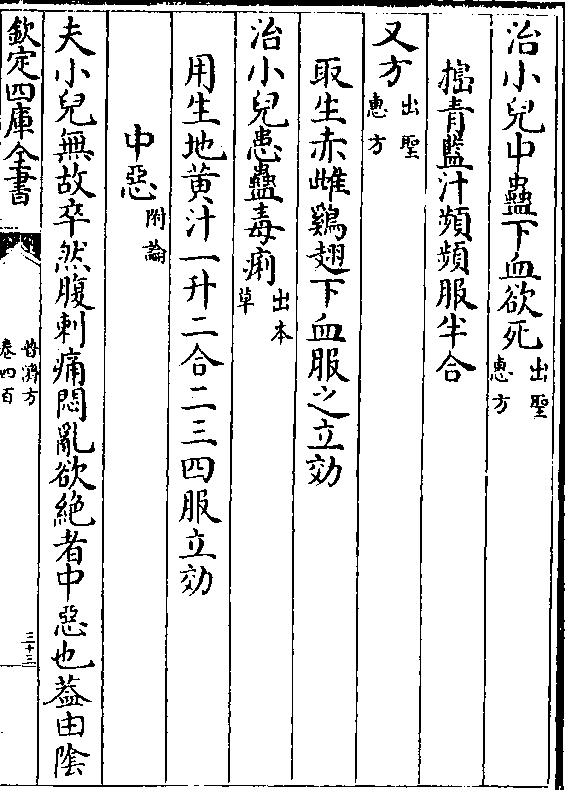 治小兒中蠱下血欲死出聖惠方
搗青藍汁頻頻服半合
又方出聖惠方
取生赤雌鷄翅下血服之立効
治小兒患蠱毒痢出本草
用生地黄汁一升二合二三四服立効
中惡附論
夫小兒無故卒然腹刺痛悶亂欲絶者中惡也葢由陰
欽定四庫全書
普濟方
卷四百
三十三